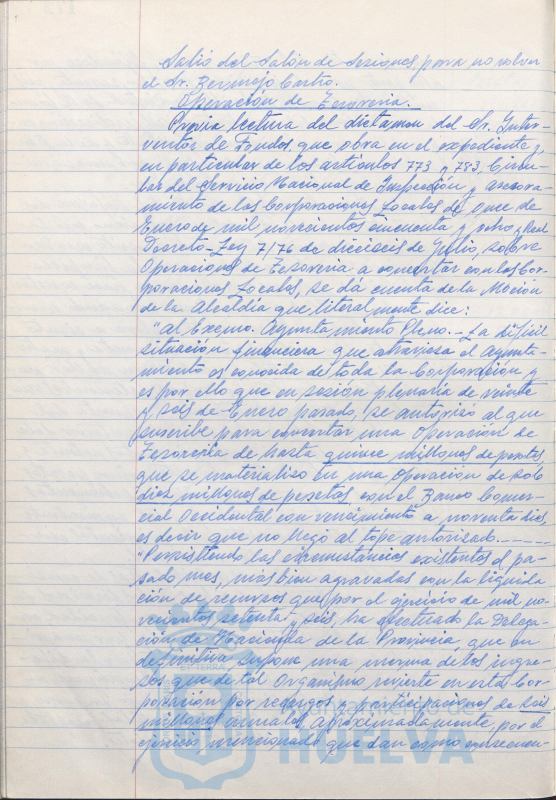 Salió del Salón de Sesiones, para no volver
el Sr. Bermejo Castro.
Operación de Tesorería.
Previa lectura del dictamen del Sr. Inter-
ventor de Fondos, que obra en el expediente y
en particular de los artículos 773 y 783, Circu-
lar del Servicio Nacional de Inspección y asesora-
miento de las Corporaciones Locales de once de
Enero de mil novecientos cincuenta y ocho y Real
Decreto-Ley 7/76 de dieciseis de Julio, sobre
Operaciones de Tesorería a concertar con las Cor-
poraciones Locales, se dá cuenta de la Moción
de la Alcaldía que literalmente dice:
"Al Excmo. Ayuntamiento Pleno.- La dificil
situación financiera que atraviesa el Ayunta-
miento es conocida de toda la Corporación y
es por ello que en sesión plenaria de veinte
y seis de Enero pasado, se autorizó al que
suscribe para concertar una Operación de
Tesorería de hasta quince millones de pesetas
que se materializó en una Operación de sólo
diez millones de pesetas con el Banco Comer-
cial Occidental con vencimiento a noventa dias,
es decir que no llegó al tope autorizado.------
"Persistiendo las circunstancias existentes el pa-
sado mes, más bien agravadas con la liquida-
ción de recursos que por el ejercicio de mil no-
vecientos setenta y seis, ha efectuado la Delega-
ción de Hacienda de la Provincia que en
definitiva supone una merma de los ingre-
sos que de tal Organismo revierte en esta Cor-
poración por recargos y participaciones de seis
millones anuales aproximadamente, por el
ejercicio mencionado que dan como consecuen-
HUELVA